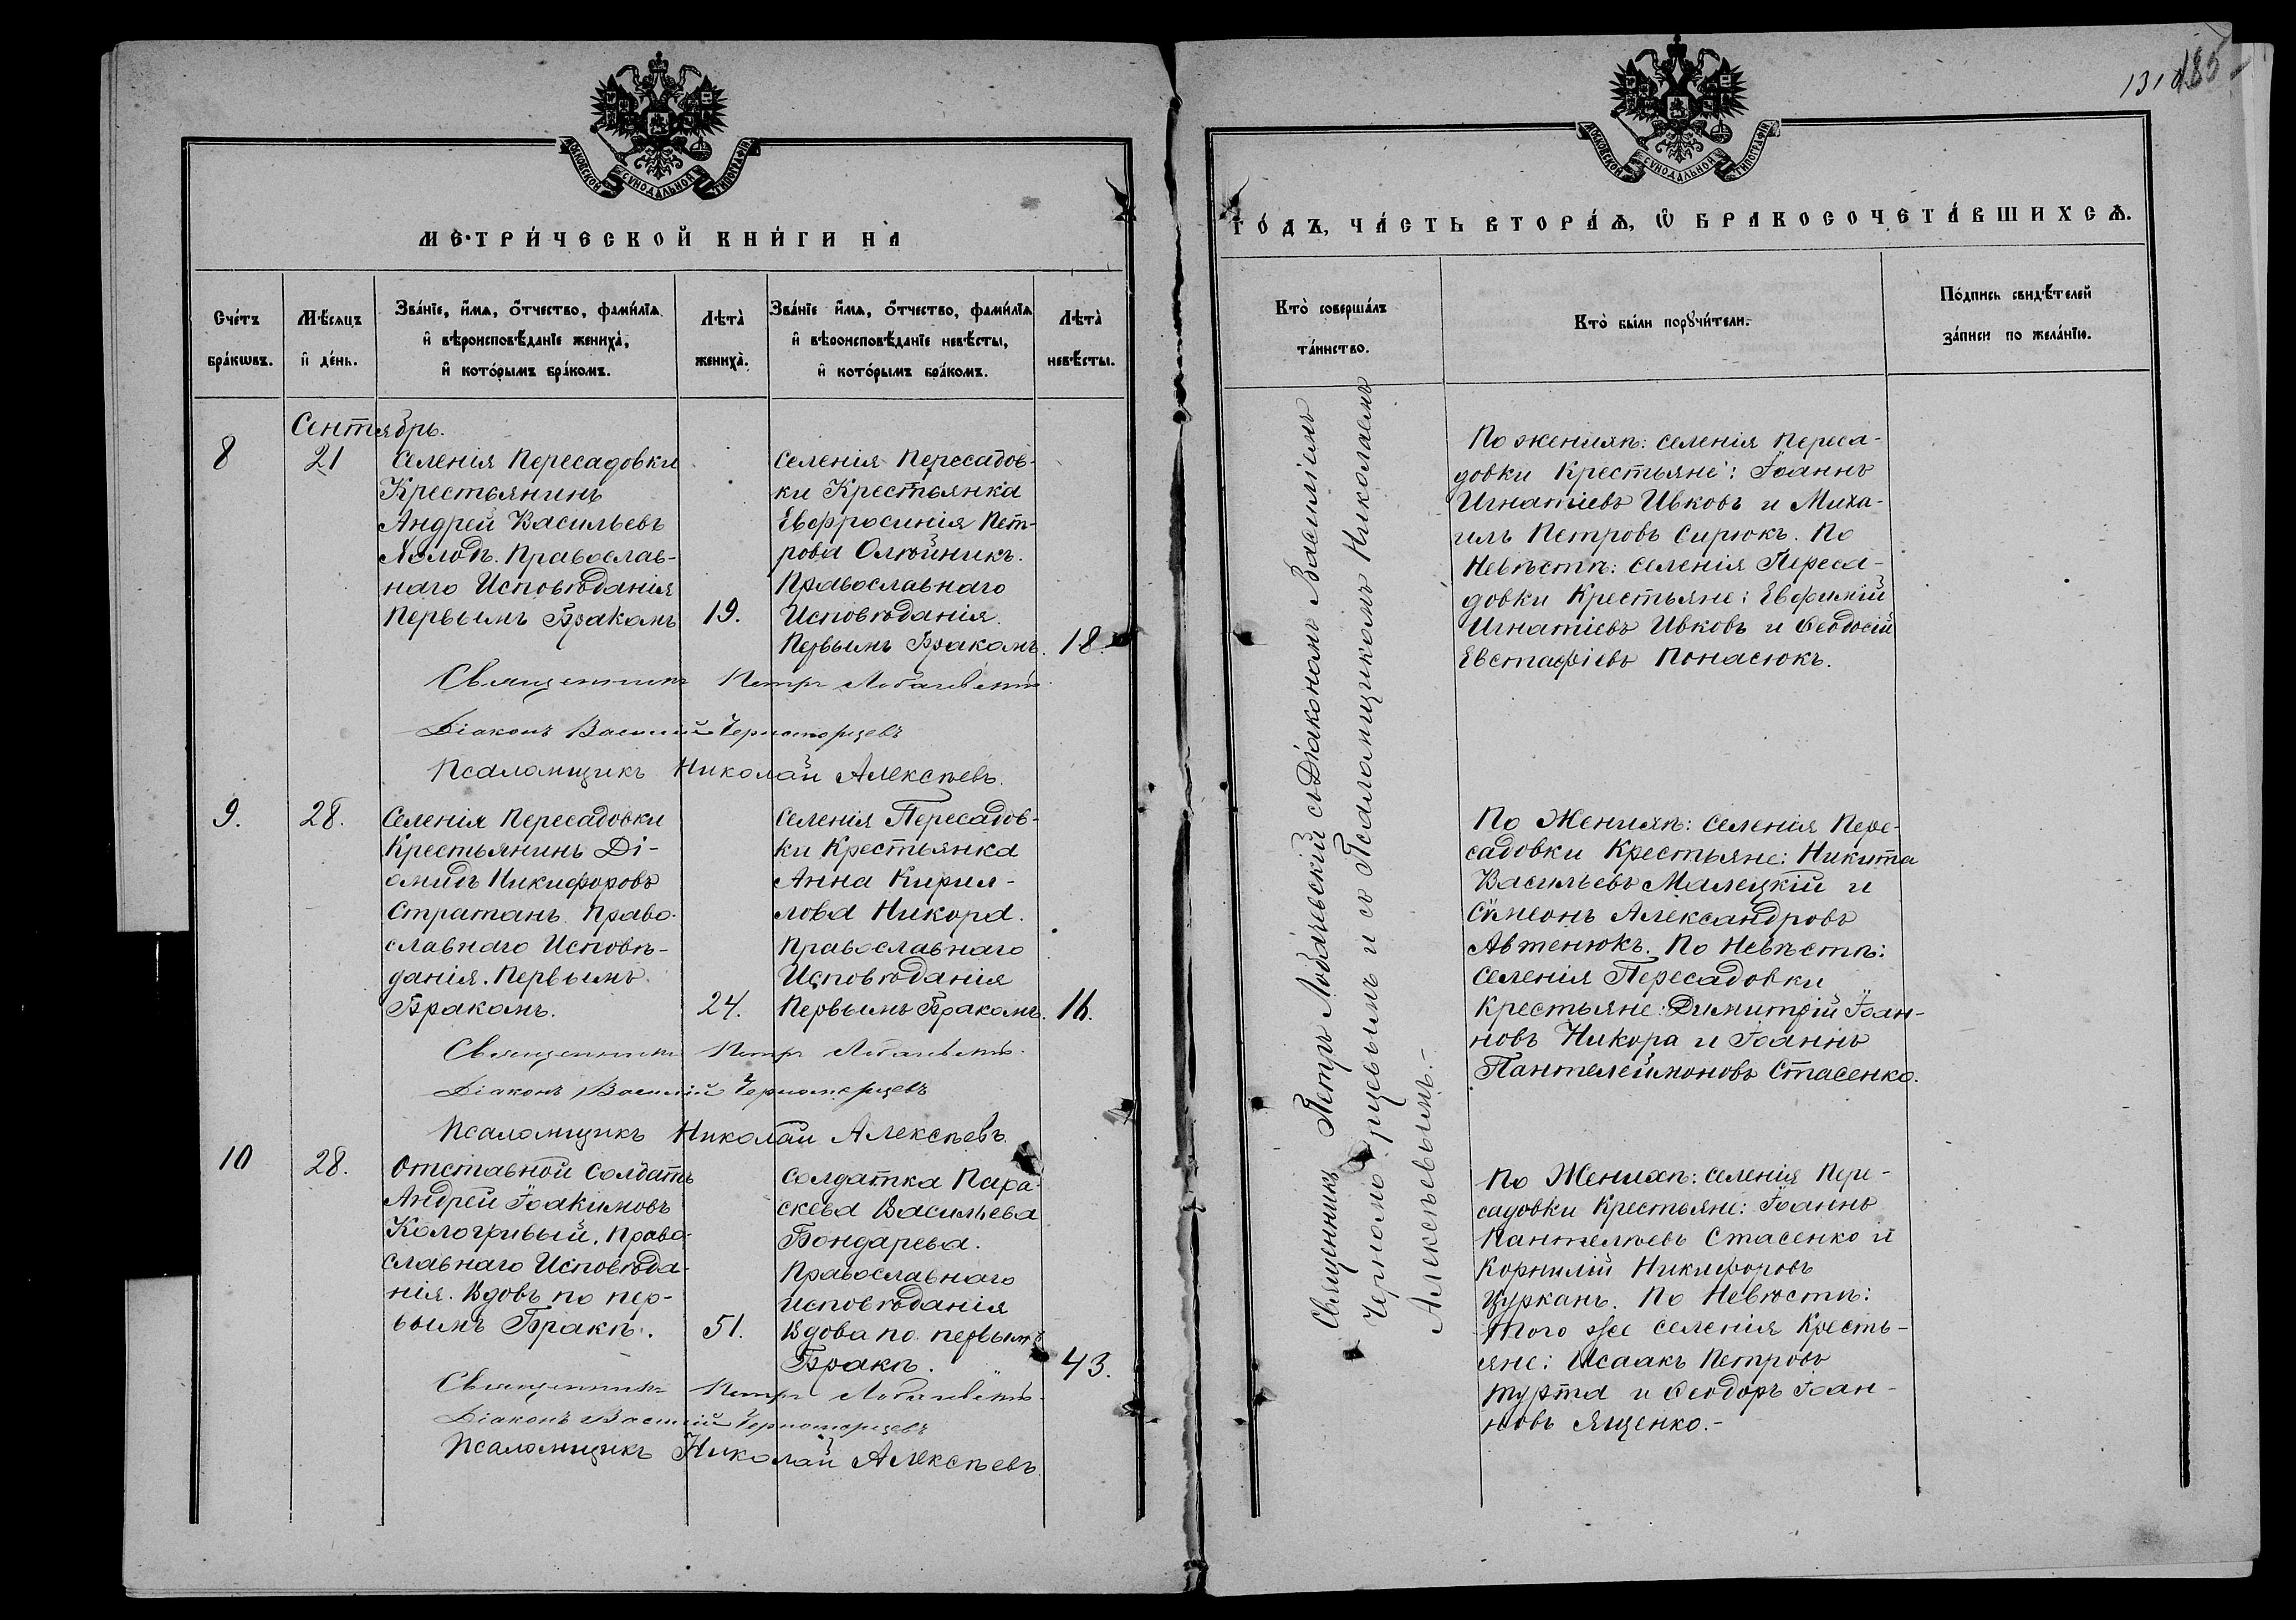 МОСКОВСКОЙ СѴНОДАЛЬНОЙ ТИПОГРАФІИ
МЕТРИ́ЧЕСКОЙ КНИ́ГИ НА
Сче́тъ бра́кѡвъ.
Мѣ́сяцъ и҆ де́нь.
Зва́нїе, и҆́мѧ, ѻ҆́тчество, фами́лїѧ
и҆ вѣроисповѣ́данїе жениха̀,
и҆ кото́рымъ бра́комъ.
Лѣта̀ жениха̀.
Зва́нїе и҆́мѧ, ѻ҆́тчество, фами́лїѧ
и҆ вѣроисповѣ́данїе невѣ́сты,
и҆ кото́рымъ бра́комъ.
Лѣта̀ невѣ́сты.
Сентябрь.
8
21
Селенія Пересадовки
Крестьянинъ
Андрей Васильевъ
Холодъ. Православ-
наго Исповѣданія
Первымъ Бракомъ
19.
Селенія Пересадов-
ки Крестьянка
Евфросинія Пет-
рова Олюйникъ.
Православнаго
Исповѣданія.
Первымъ Бракомъ.
18.
Священникъ Петръ Лобачевскій
Діаконъ Василій Черноморцевъ
Псаломщикъ Николай Алексѣевъ.
9.
28.
Селенія Пересадовки
Крестьянинъ Ді-
омидъ Никифоровъ
Стратанъ. Право-
славнаго Исповѣ-
данія. Первымъ
Бракомъ.
24.
Селенія Пересадов-
ки Крестьянка
Анна Кирил-
лова Никора.
Православнаго
Исповѣданія
Первымъ Бракомъ.
16.
Священникъ Петръ Лобачевскій.
Діаконъ Василій Черноморцевъ
Псаломщикъ Николай Алексѣевъ.
10
28.
Отставной Солдатъ
Андрей Іоакимовъ
Кологривый. Право-
славнаго Исповѣда-
нія. Вдовъ по пер-
вымъ Бракѣ.
51.
Солдатка Пара-
скева Васильева
Бондарева.
Православнаго
исповѣданія
Вдова по первымъ
Бракѣ.
43.
Священникъ Петръ Лобачевскій.
Діаконъ Василій Черноморцевъ
Псаломщикъ Николай Алексѣевъ.
185
МОСКОВСКОЙ СѴНОДАЛЬНОЙ ТИПОГРАФІИ
ГО́ДЪ, ЧА́СТЬ ВТОРА́Ѧ, Ѡ҆ БРАКОСОЧЕТА́ВШИХСѦ.
Кто̀ соверша́лъ
та́инство.
Кто̀ бы́ли порꙋчи́тели.
По́дпись свидѣ́телей
за́писи по жела́нїю.
Священникъ Петръ Лобачевскій съ Діакономъ Василіемъ
Черноморцевымъ и съ Псаломщикомъ Николаемъ
Алексѣевымъ.-
По женихѣ: селенія Переса-
довки Крестьяне: Іоаннъ
Игнатіевъ Ивковъ и Миха-
илъ Петровъ Сирюкъ. По
Невѣстѣ: Селенія Переса-
довки Крестьяне: Евфимій
Игнатіевъ Ивковъ и Ѳеодосій
Евстафіевъ Понасюкъ.
По Женихѣ: Селенія Пере-
садовки Крестьяне: Никита
Васильевъ Малецкій и
Симеонъ Александровъ
Автенюкъ. По Невѣстѣ:
Селенія Пересадовки
Крестьяне: Димитрій Іоан-
новъ Никора и Іоаннъ
Пантелеймоновъ Стасенко.
По Женихѣ: Селенія Пере-
садовки Крестьяне: Іоаннъ
Пантелѣевъ Стасенко и
Корнилій Никифоровъ
Цурканъ. По Невѣстѣ:
того же селенія Кресть-
яне: Исаакъ Петровъ
Туртa и Ѳеодоръ Іоан-
новъ Ященко.-